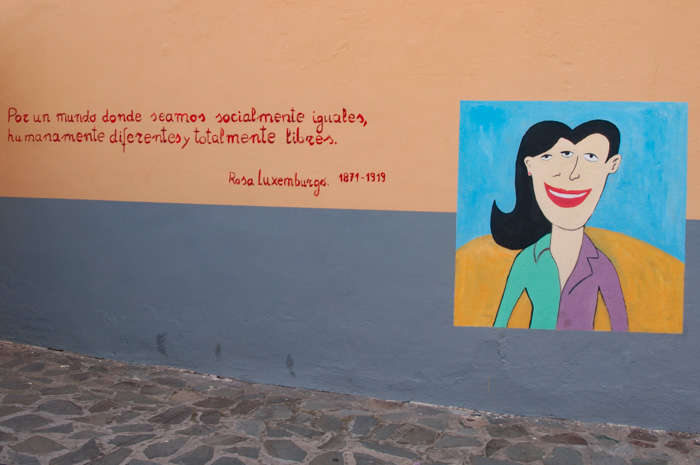 Por un mundo donde seamos socialmente iguales,
humanamente diferentes y totalmente libres.
Rosa Luxemburgo. 1871-1919